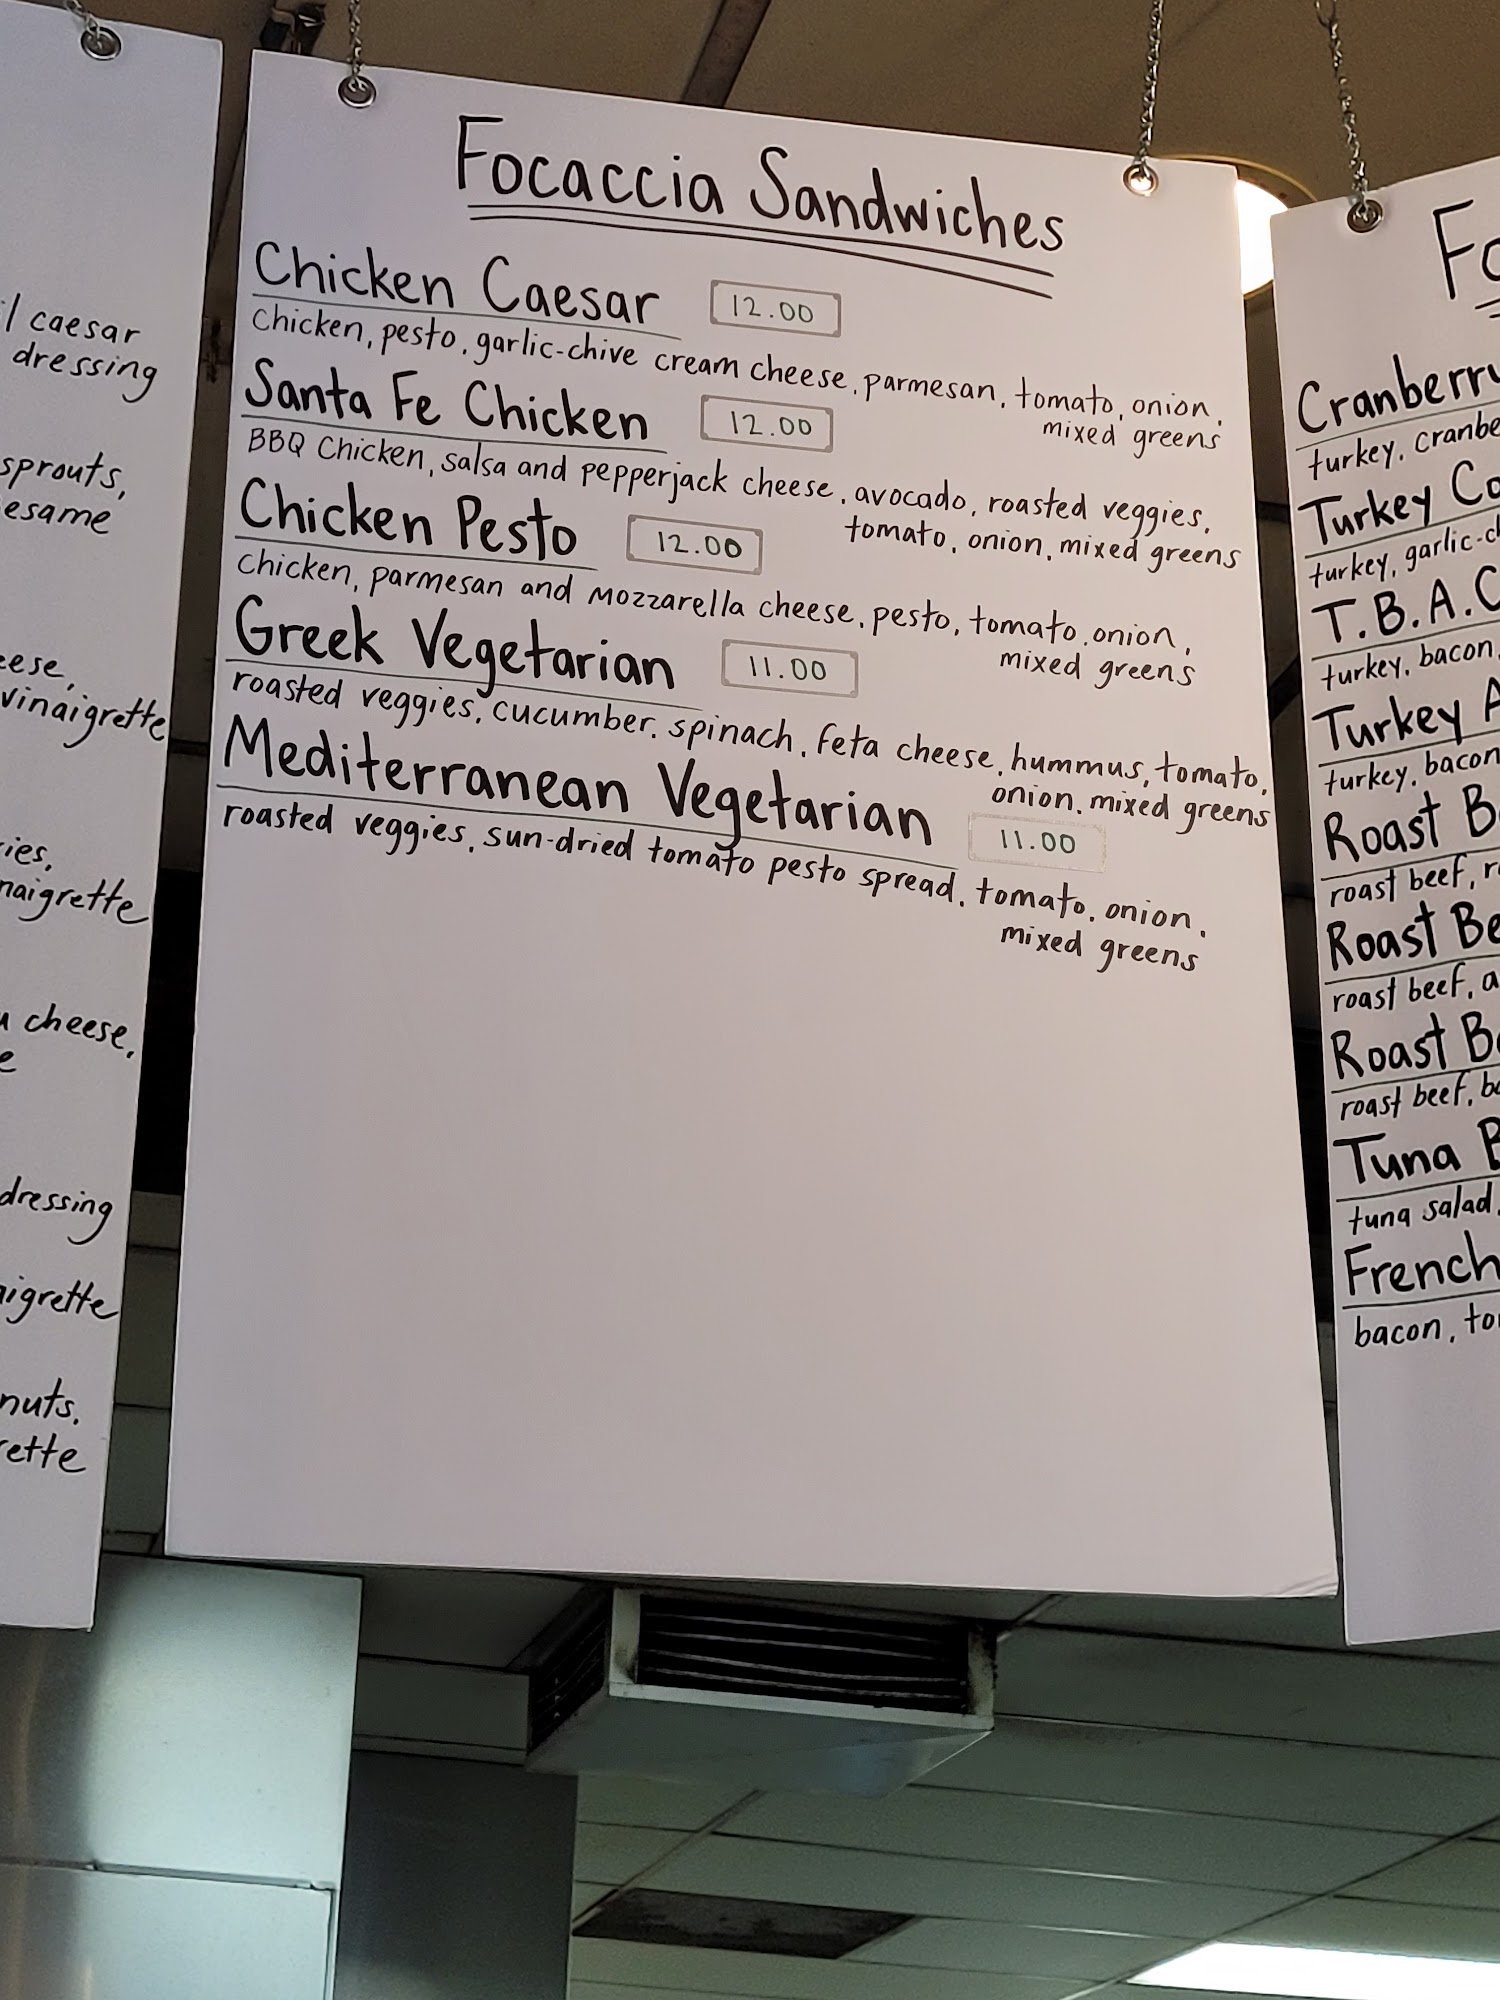 caesar
dressing
sprouts,
vinaigrette
cheese,
dressing
nuts,
Focaccia Sandwiches
Chicken Caesar 12.00
Chicken, pesto, garlic-chive cream cheese, parmesan, tomato, onion,
mixed greens
Santa Fe Chicken 12.00
BBQ Chicken, salsa and pepperjack cheese, avocado, roasted veggies,
tomato, onion, mixed greens
Chicken Pesto 12.00
Chicken, parmesan and mozzarella cheese, pesto, tomato, onion,
mixed greens
Greek Vegetarian 11.00
roasted veggies, cucumber, spinach, feta cheese, hummus, tomato,
onion, mixed greens
Mediterranean Vegetarian 11.00
roasted veggies, sun-dried tomato pesto spread, tomato, onion,
mixed greens
Cranberry
turkey,
Turkey
turkey,
T.B.A.
turkey, bacon,
Turkey
turkey, bacon
Roast
roast beef,
Roast
roast beef,
Roast
roast beef,
Tuna
tuna salad,
French
bacon,